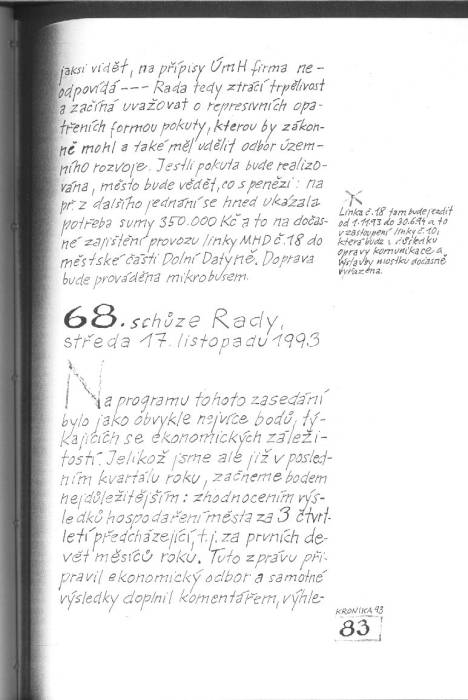 jaksi vidět, na přípisy ÚMH firma ne-
odpovídá --- Rada tedy ztrácí trpělivost
a začíná uvažovat o represivních opa-
třeních formou pokuty, kterou by zákon-
ně mohl a také měl udělit odbor územ-
ního rozvoje. Jestli pokuta bude realizo-
vána, město bude vědět, co s penězi: na
př. z dalšího jednání se hned ukázala
potřeba sumy 350.000 Kč a to na dočas-
né zajištění provozu linky MHD č.18 do
městské části Dolní Datyně. Doprava
bude prováděna mikrobusem.
Linka č.18 tam bude jezdit
od 1.11.93 do 30.6.94 a to
v zastoupení linky č.10,
která bude v důsledku
opravy komunikace a
výstavby mostku dočasně
vyřazena.
68. schůze Rady,
středa 17. listopadu 1993
Na programu tohoto zasedání
bylo jako obvykle nejvíce bodů, tý-
kajících se ekonomických záleži-
tostí. Jelikož jsme ale již v posled-
ním kvartálu roku, začneme bodem
nejdůležitějším: zhodnocením výs-
ledků hospodaření města za 3 čtvrt-
letí předcházející, t.j. za prvních de-
vět měsíců roku. Tuto zprávu při-
pravil ekonomický odbor a samotné
výsledky doplnil komentářem, výhle-
KRONIKA 93
83